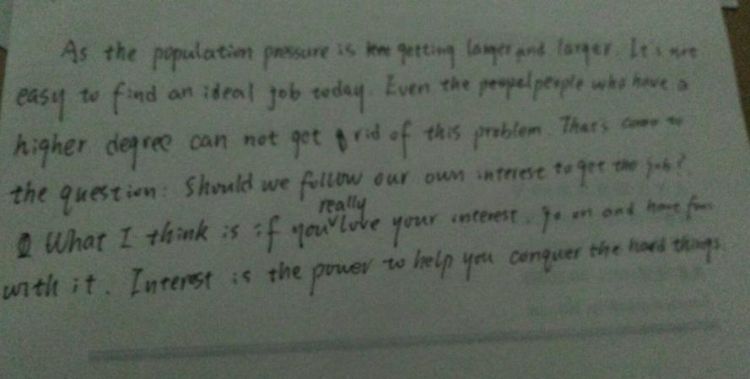 As the population pressure is getting larger and larger. It's not
easy to find an ideal job today. Even the people who have a
higher degree can not get rid of this problem. That's come to
the question: Should we follow our own interest to get the job?
What I think is if you really love your interest. Go on and have fun
with it. Interest is the power to help you conquer the hard things.